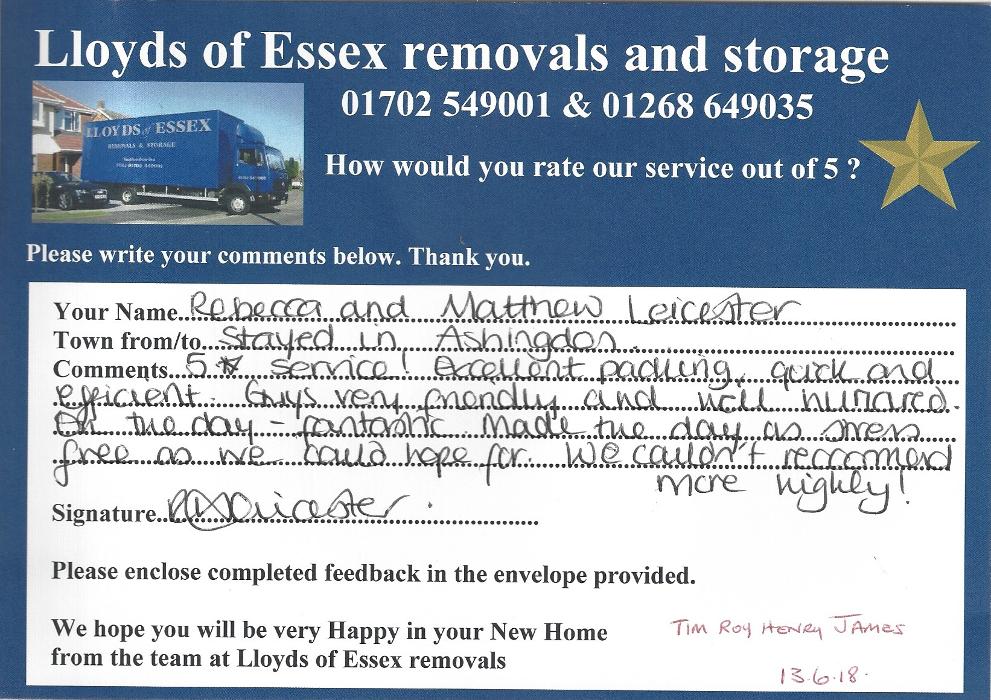 Lloyds of Essex removals and storage
01702 549001 & 01268 649035
LLOYDS of ESSEX
REMOVALS & STORAGE
How would you rate our service out of 5 ?
Please write your comments below. Thank you.
Your Name Rebecca and Matthew Leicester
Town from/to Stayed in Ashingdon.
Comments 5* service! Excellent packing, quick and
efficient. Guys very friendly and well humored.
On the day - fantastic. Made the day as stress
free as we could hope for. We couldn't reccomend
more highly!
Signature Leicester.
Please enclose completed feedback in the envelope provided.
We hope you will be very Happy in your New Home
from the team at Lloyds of Essex removals
TIM ROY HENRY JAMES
13.6.18.